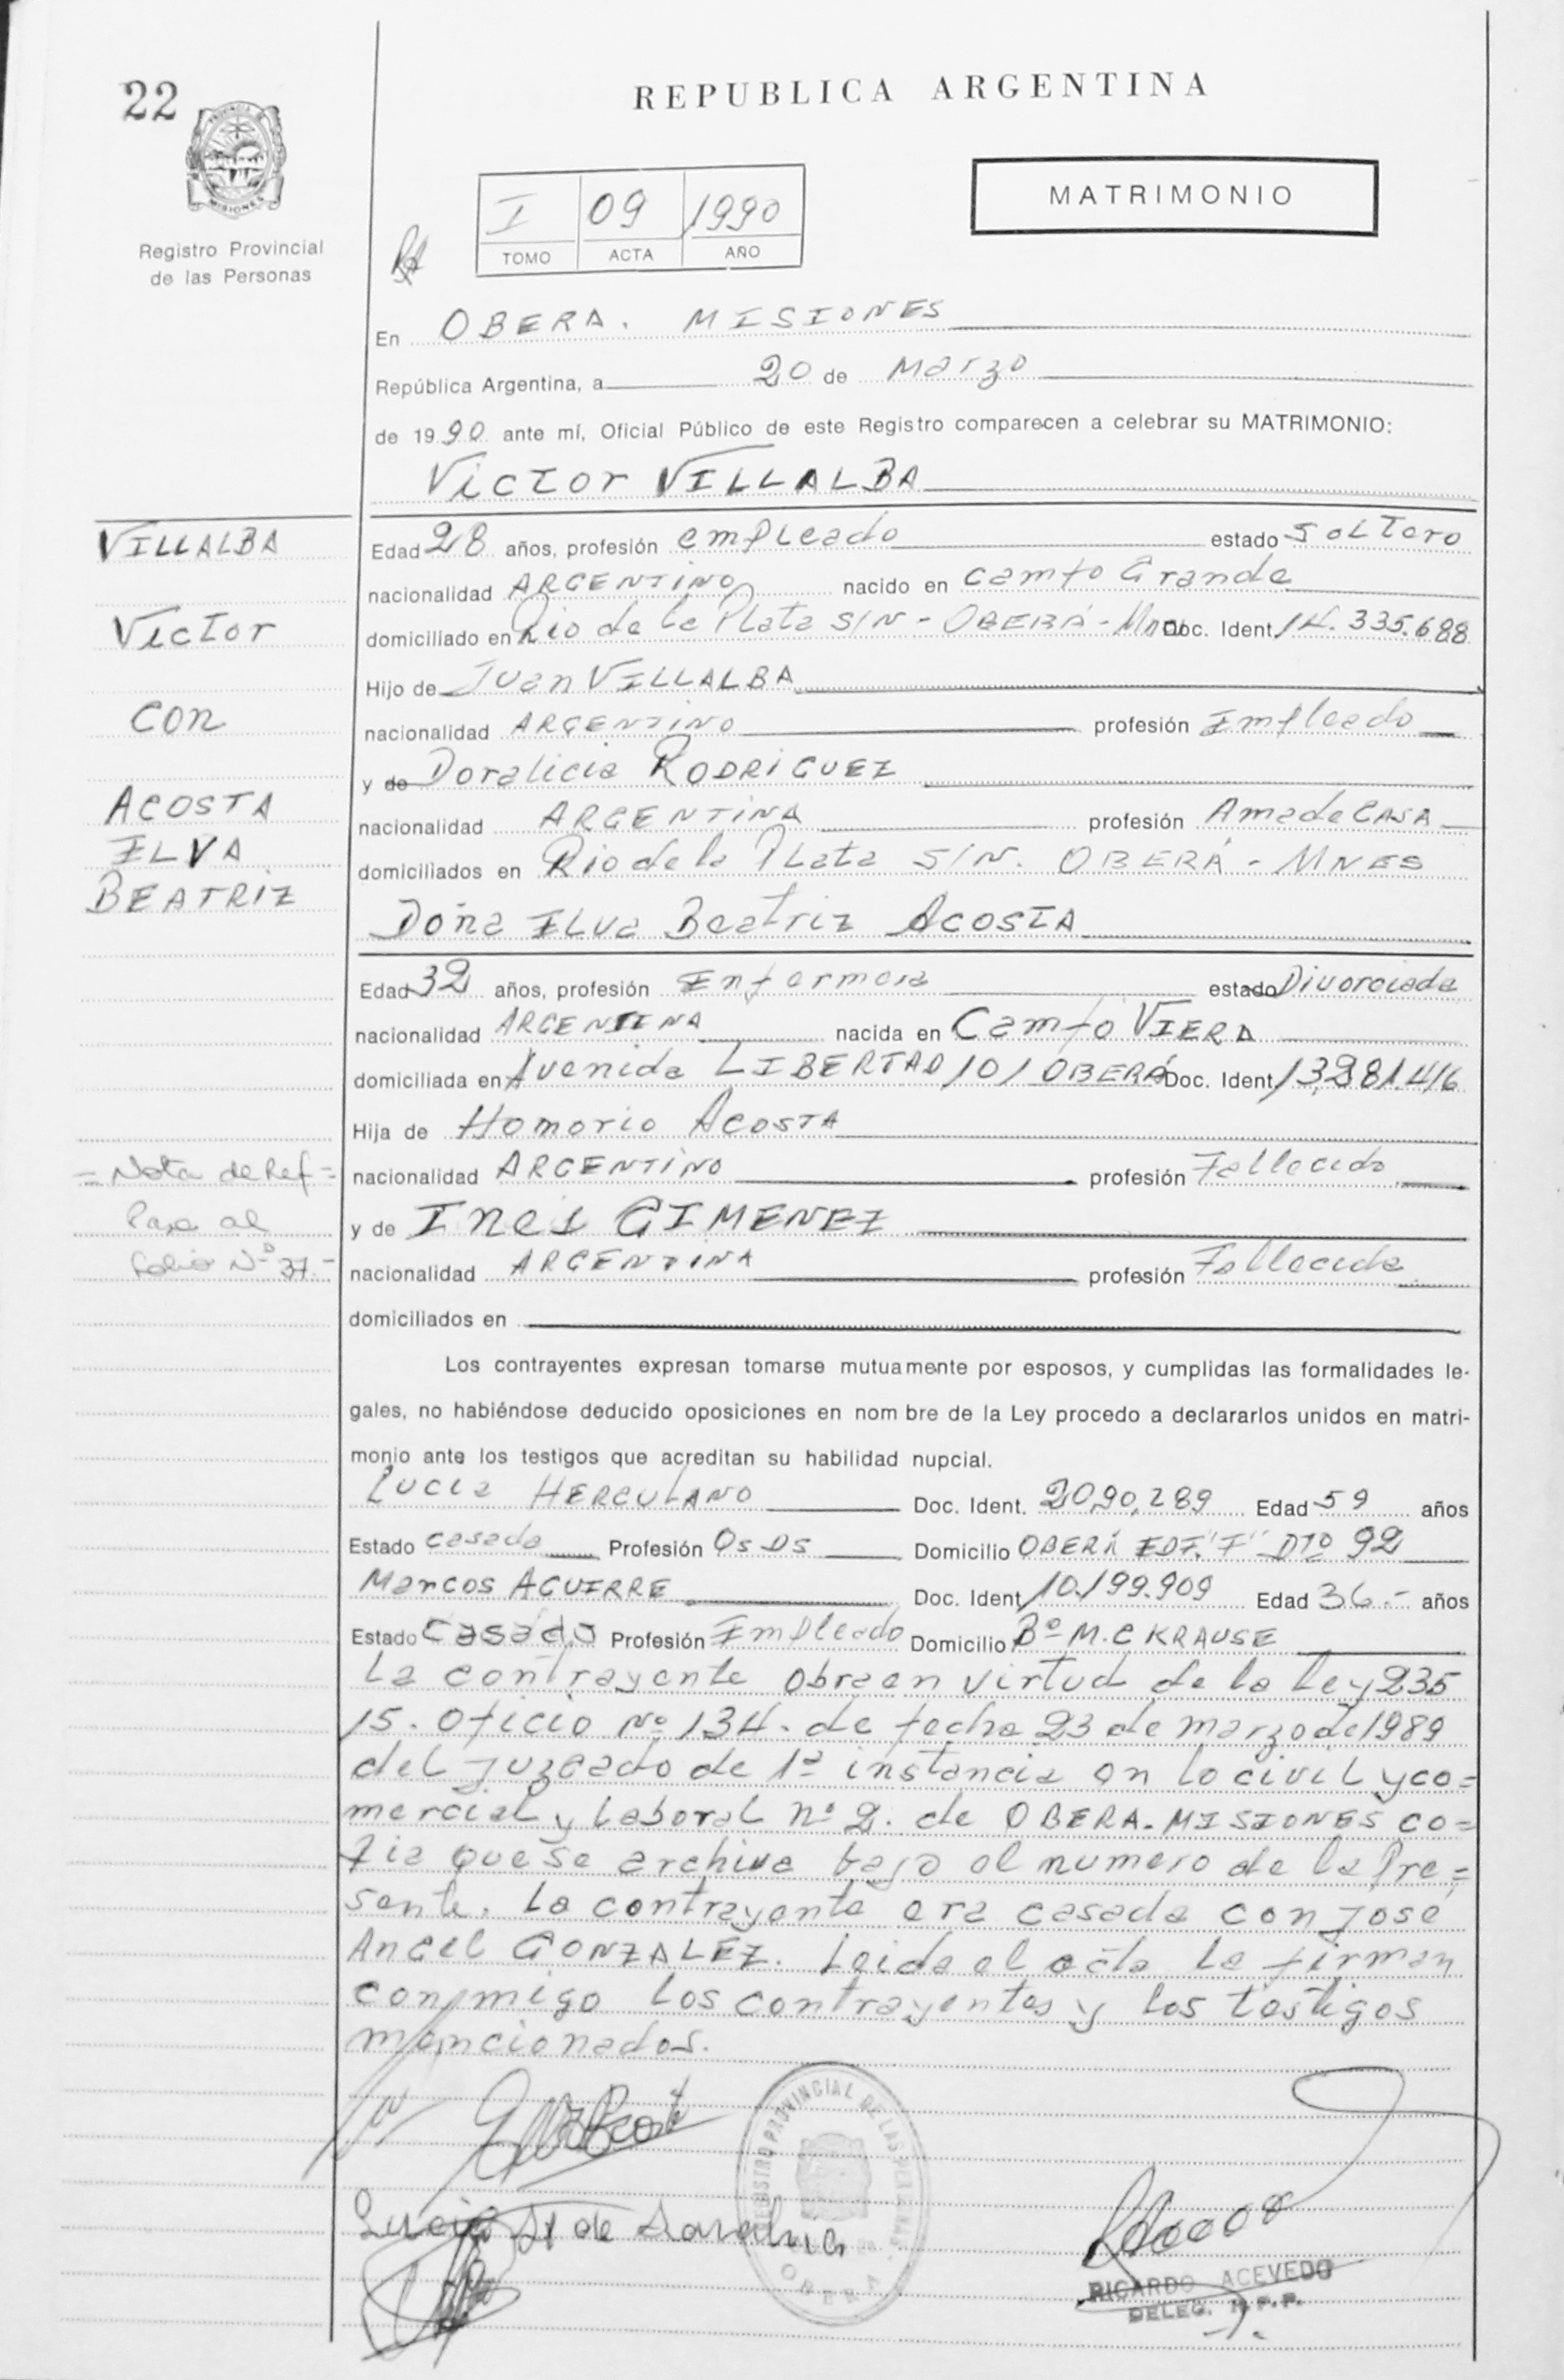 22
REPUBLICA ARGENTINA
PROVINCIA
MISIONES
MATRIMONIO
Registro Provincial
de las Personas
I 09 1990
TOMO ACTA AÑO
En OBERA. MISIONES
República Argentina, a 20 de Marzo
de 1990 ante mí, Oficial Público de este Registro comparecen a celebrar su MATRIMONIO:
Victor VILLALBA
VILLALBA
Victor
con
ACOSTA
ILVA
BEATRIZ
Edad 28 años, profesión empleado estado SoLTero
nacionalidad ARGENTINO nacido en Campo Grande
domiciliado en Rio de la Plata S/N - OBERÁ - Mnes Doc. Ident. 14.335.688
Hijo de Juan VILLALBA
nacionalidad ARGENTINO profesión Empleado
y de Doralicia RODRIGUEZ
nacionalidad ARGENTINA profesión Ama de CASA
domiciliados en Rio de la Plata S/N. OBERÁ - MNES
Doña ILva Beatriz ACOSTA
Edad 32 años, profesión Enfermera estado Divorciada
nacionalidad ARGENTINA nacida en Campo VIERA
domiciliada en Avenida LIBERTAD 101 OBERÁ Doc. Ident.
Hija de Homorio ACOSTA
nacionalidad ARGENTINO profesión Fallecido
y de Ines GIMENEZ
nacionalidad ARGENTINA profesión Fallecida
domiciliados en
= Nota de Ref =
Pasa al
folio Nº 37.-
Los contrayentes expresan tomarse mutuamente por esposos, y cumplidas las formalidades le-
gales, no habiéndose deducido oposiciones en nom bre de la Ley procedo a declararlos unidos en matri-
monio ante los testigos que acreditan su habilidad nupcial.
Lucia HERCULANO Doc. Ident. 2090,289 Edad 59 años
Estado casada Profesión Qs Ds Domicilio OBERÁ EDF. "F" DTO 92
Marcos AGUIRRE Doc. Ident. 10.199.909 Edad 36.- años
Estado casado Profesión Empleado Domicilio Bº M.C KRAUSE
La contrayente obra en virtud de la Ley 235
15. oficio Nº 134. de fecha 23 de marzo de 1989
del juzgado de 1ª instancia en lo civil y co=
mercial y laboral nº 2. de OBERA-MISIONES co=
pia que se archiva bajo el numero de la Pre=
sente. La contrayente era casada con José
Angel GONZALEZ. Leida el acta la firman
conmigo los contrayentes y los testigos
mencionados.
REGISTRO PROVINCIAL DE LAS PERSONAS
OBERA
Lucia H de
RICARDO ACEVEDO
DELEG. R.P.P.